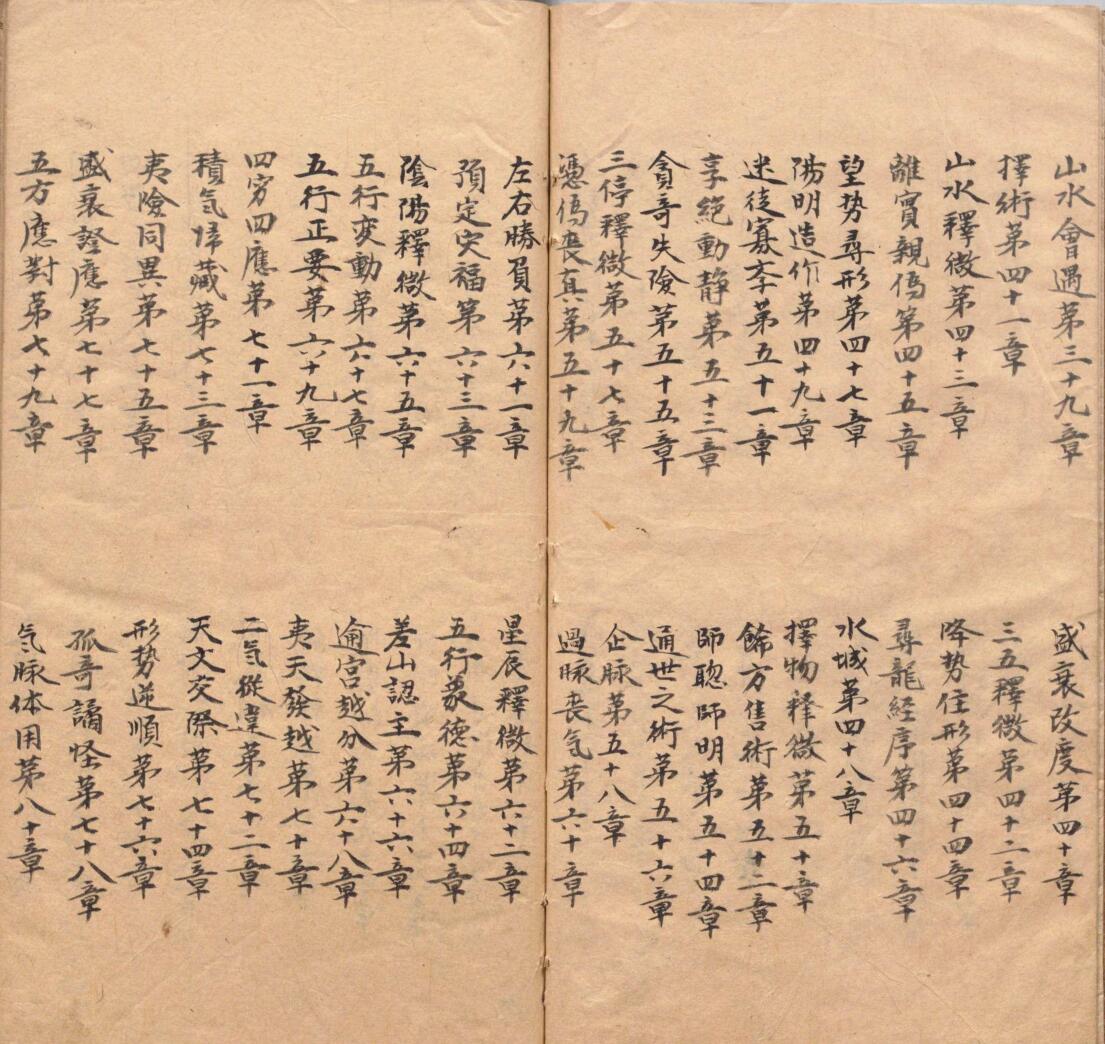 山水會遇第三十九章
盛衰改度第四十章
擇術第四十一章
三五釋微第四十二章
山水釋微第四十三章
降势住形第四十四章
離實親偽第四十五章
尋龍經序第四十六章
望势尋形第四十七章
水城第四十八章
陽明造作第四十九章
擇物释微第五十章
迷徒寡李第五十一章
餙方售術第五十二章
享絶動静第五十三章
師聦師明第五十四章
貪奇失險第五十五章
通世之術第五十六章
三停釋微第五十七章
企脉第五十八章
憑偽喪真第五十九章
過脉喪气第六十章
左右勝負第六十一章
星辰釋微第六十二章
預定灾福第六十三章
五行象德第六十四章
陰陽釋微第六十五章
差山認主第六十六章
五行变動第六十七章
逾宫越分第六十八章
五行正要第六十九章
夷天發越第七十章
四穷四應第七十一章
二气從違第七十二章
積气歸藏第七十三章
天文交際第七十四章
夷險同異第七十五章
形势逆順第七十六章
盛衰證應第七十七章
孤奇譎怪第七十八章
五方應對第七十九章
气脉体用第八十章